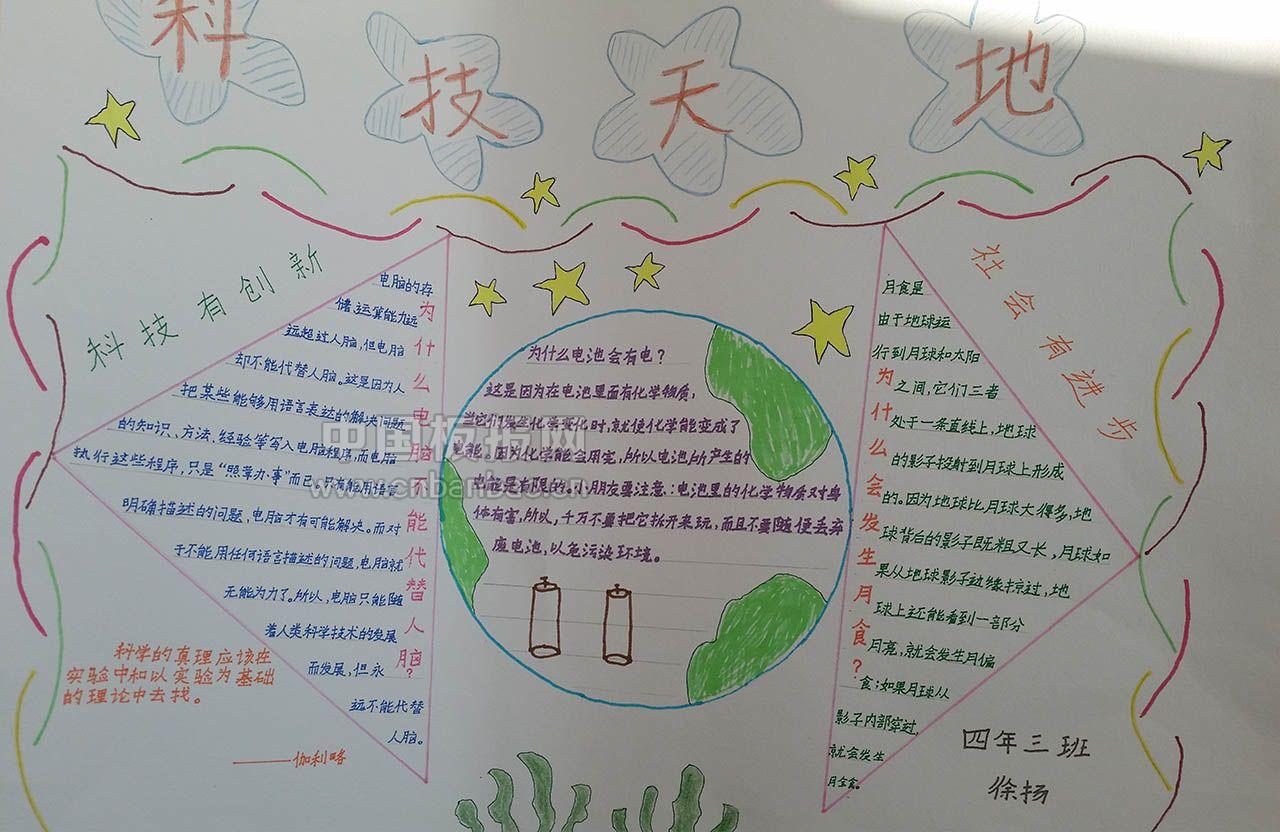 科技天地
科技有创新
社会有进步
为什么电脑不能代替人脑?
电脑的存
储、运算能力远
远超过人脑,但电脑
却不能代替人脑。这是因为人
把某些能够用语言表达的解决问题
的知识、方法、经验等写入电脑程序,而电脑
执行这些程序,只是“照章办事”而已。只有能用语言
明确描述的问题,电脑才有可能解决。而对
于不能用任何语言描述的问题,电脑就
无能为力了。所以,电脑只能随
着人类科学技术的发展
而发展,但永
远不能代替
人脑。
科学的真理应该在
实验中和以实验为基础
的理论中去找。
——伽利略
为什么电池会有电?
这是因为在电池里面有化学物质,
当它们发生化学变化时,就使化学能变成了
电能。因为化学能会用完,所以电池所产生的
电能是有限的。小朋友要注意:电池里的化学物质对身
体有害,所以,千万不要把它拆开来玩,而且不要随便丢弃
废电池,以免污染环境。
为什么会发生月食?
月食是
由于地球运
行到月球和太阳
之间,它们三者
处于一条直线上,地球
的影子投射到月球上形成
的。因为地球比月球大得多,地
球背后的影子既粗又长,月球如
果从地球影子边缘掠过,地
球上还能看到一部分
月亮,就会发生月偏
食;如果月球从
影子内部穿过,
就会发生
月全食。
四年三班
徐扬
中国板报网
www.cnbanbao.cn